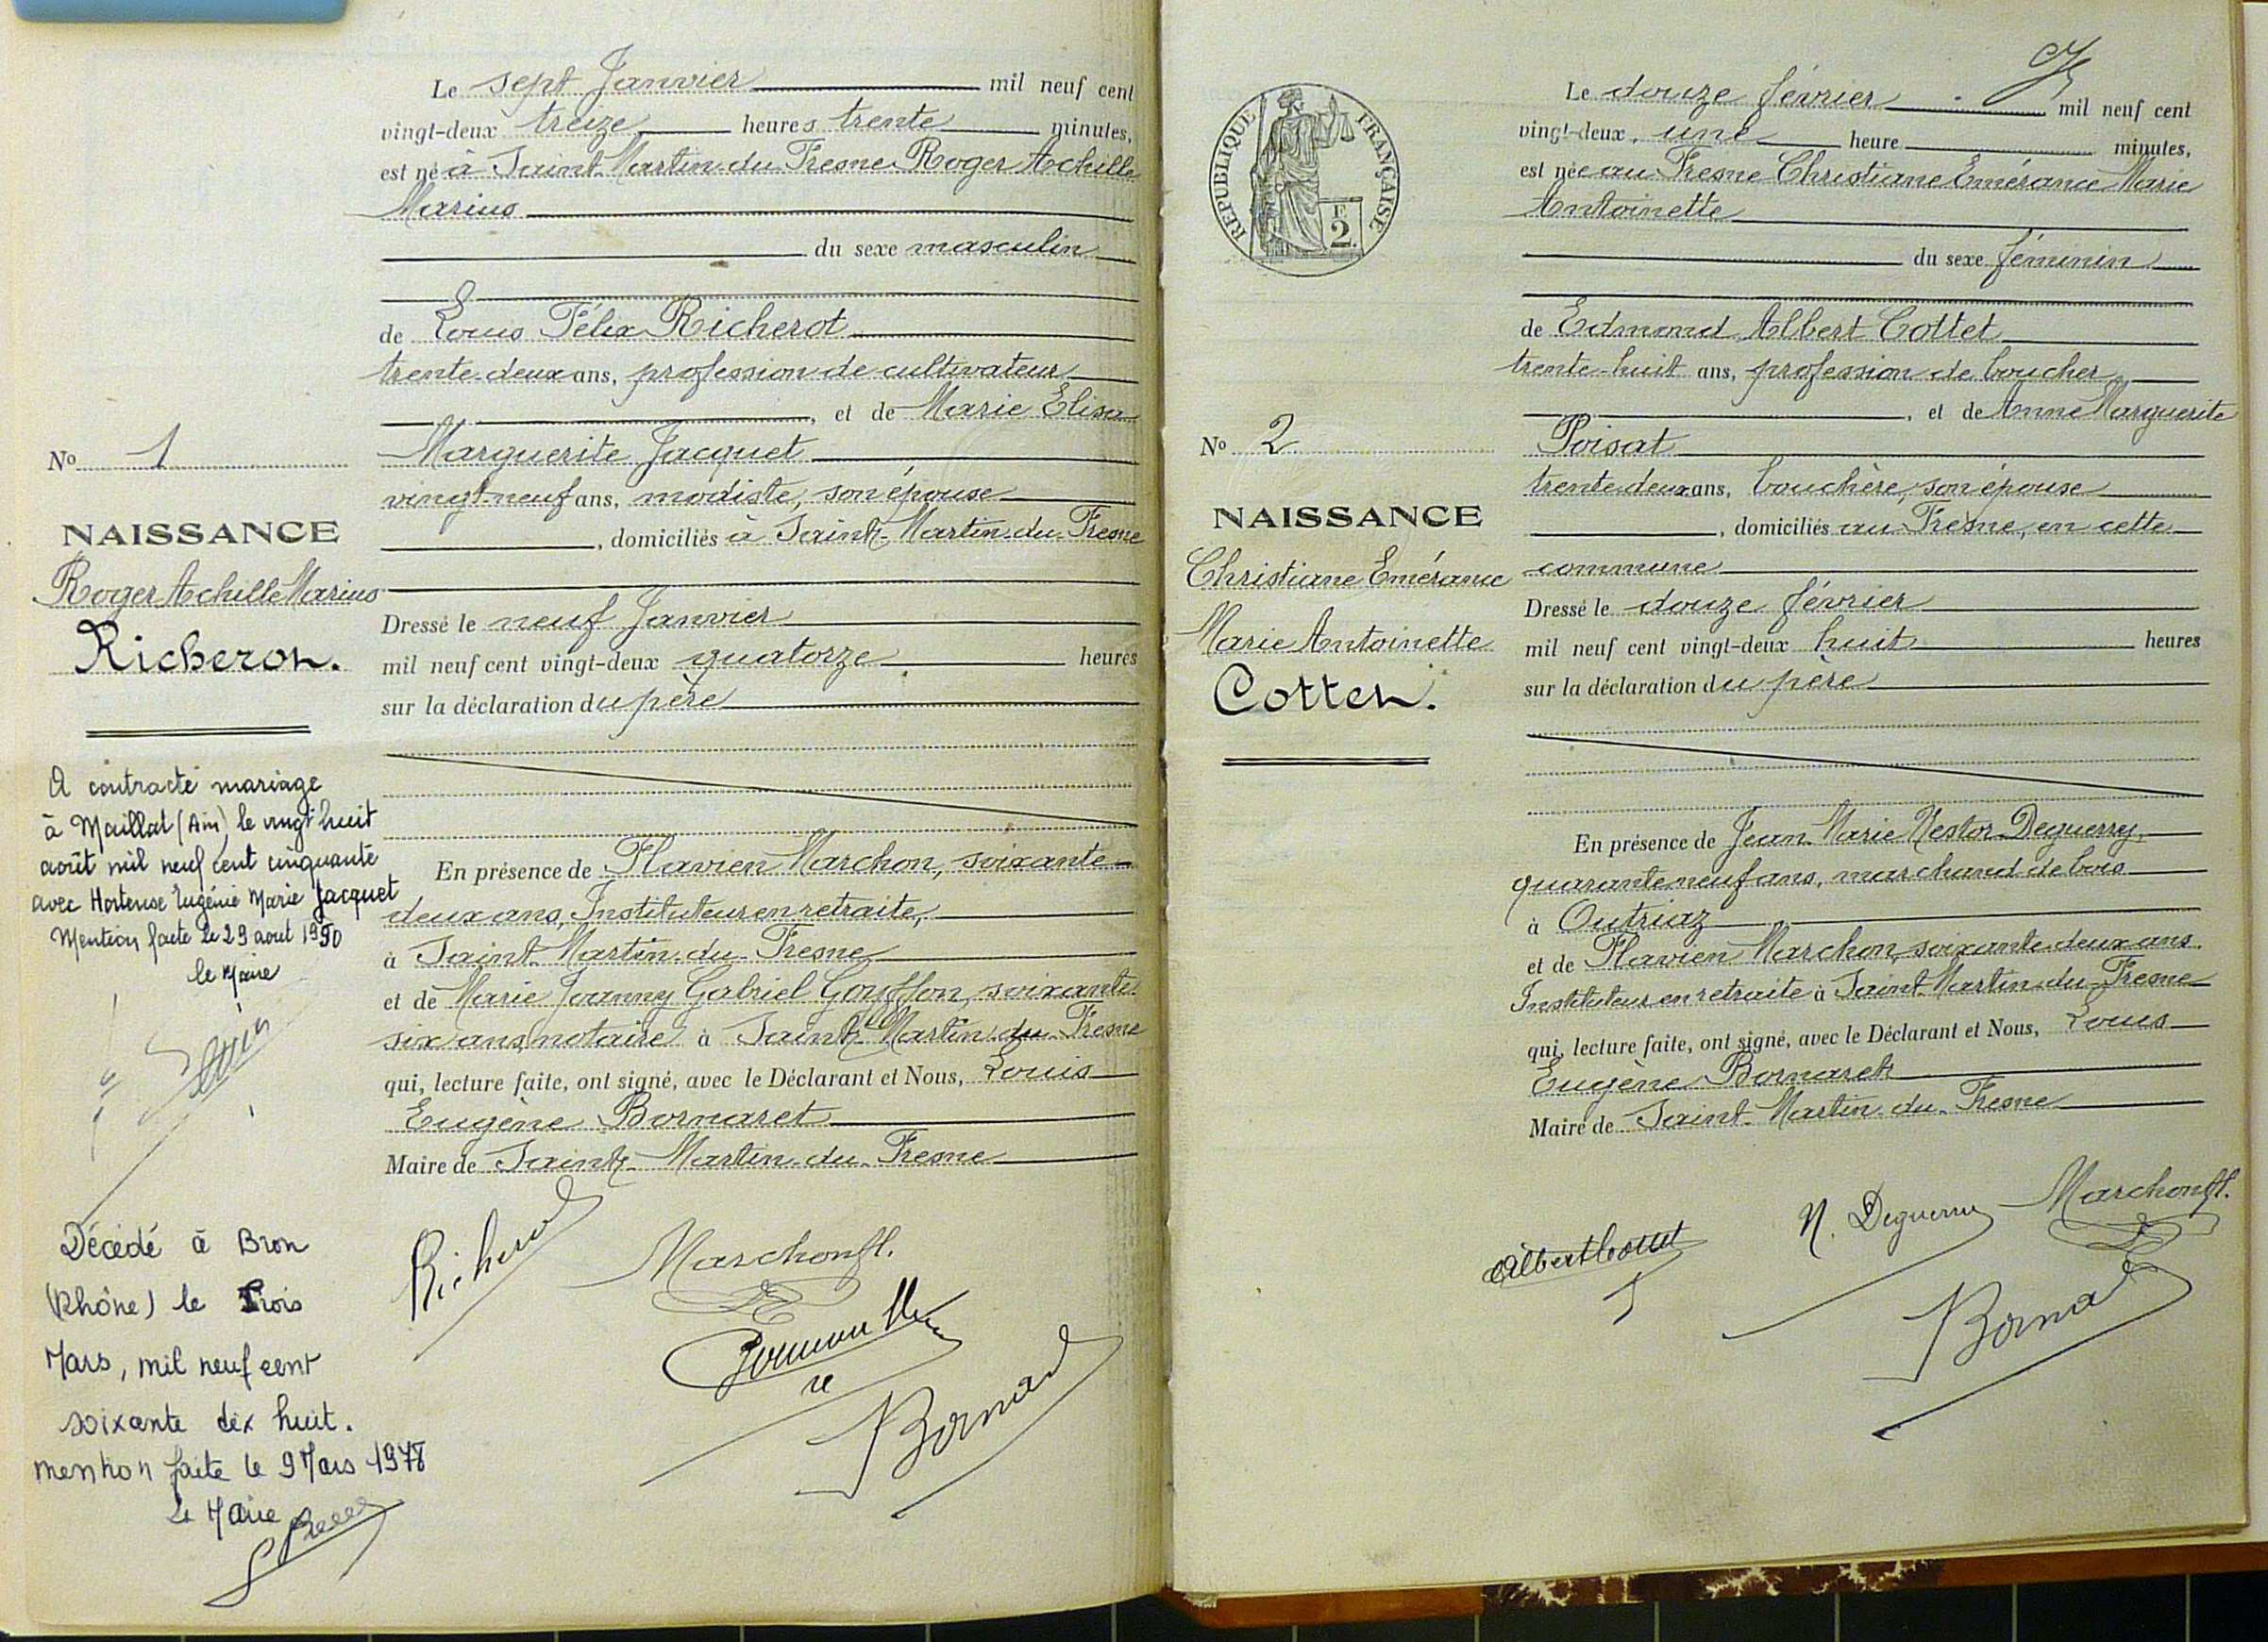 Le sept Janvier mil neuf cent
vingt-deux treize heures trente minutes,
est né à Saint-Martin-du-Fresne Roger Achille
Marius
du sexe masculin
de Louis Félix Richerot
trente-deux ans, profession de cultivateur
, et de Marie Elisa
Marguerite Jacquet
vingt-neuf ans, modiste, son épouse
, domiciliés à Saint-Martin-du-Fresne
Dressé le neuf Janvier
mil neuf cent vingt-deux quatorze heures
sur la déclaration du père
En présence de Flavien Marchon, soixante-
deux ans, Instituteur en retraite,
à Saint-Martin-du-Fresne
et de Marie Joanny Gabriel Gouffon, soixante-
six ans, notaire à Saint-Martin-du-Fresne
qui, lecture faite, ont signé, avec le Déclarant et Nous, Louis
Eugène Bornaret
Maire de Saint-Martin-du-Fresne
Richerot
Marchon fl.
Bornaret
No 1
NAISSANCE
Roger Achille Marius
Richerot.
A contracté mariage
à Maillat (Ain) le vingt huit
août mil neuf cent cinquante
avec Hortense Eugénie Marie Jacquet
Mention faite le 29 aout 1950
le Maire
Décédé à Bron
(Rhône) le Trois
Mars, mil neuf cent
soixante dix huit.
mention faite le 9 Mars 1978
Le Maire
RÉPUBLIQUE FRANÇAISE
F
2
Le douze février mil neuf cent
vingt-deux, une heure minutes,
est née au Fresne Christiane Emérance Marie
Antoinette
du sexe féminin
de Edmond Albert Cottet
trente-huit ans, profession de boucher
, et de Anne Marguerite
Poisat
trente-deux ans, bouchère, son épouse
, domiciliés au Fresne, en cette
commune
Dressé le douze février
mil neuf cent vingt-deux huit heures
sur la déclaration du père
En présence de Jean Marie Nestor Deguerry,
quarante neuf ans, marchand de bois
à Outriaz
et de Flavien Marchon, soixante-deux ans
Instituteur en retraite à Saint-Martin-du-Fresne
qui, lecture faite, ont signé, avec le Déclarant et Nous, Louis
Eugène Bornaret
Maire de Saint-Martin-du-Fresne
Albert Cottet
N. Deguerry
Marchon fl.
Bornaret
No 2
NAISSANCE
Christiane Emérance
Marie Antoinette
Cottet.